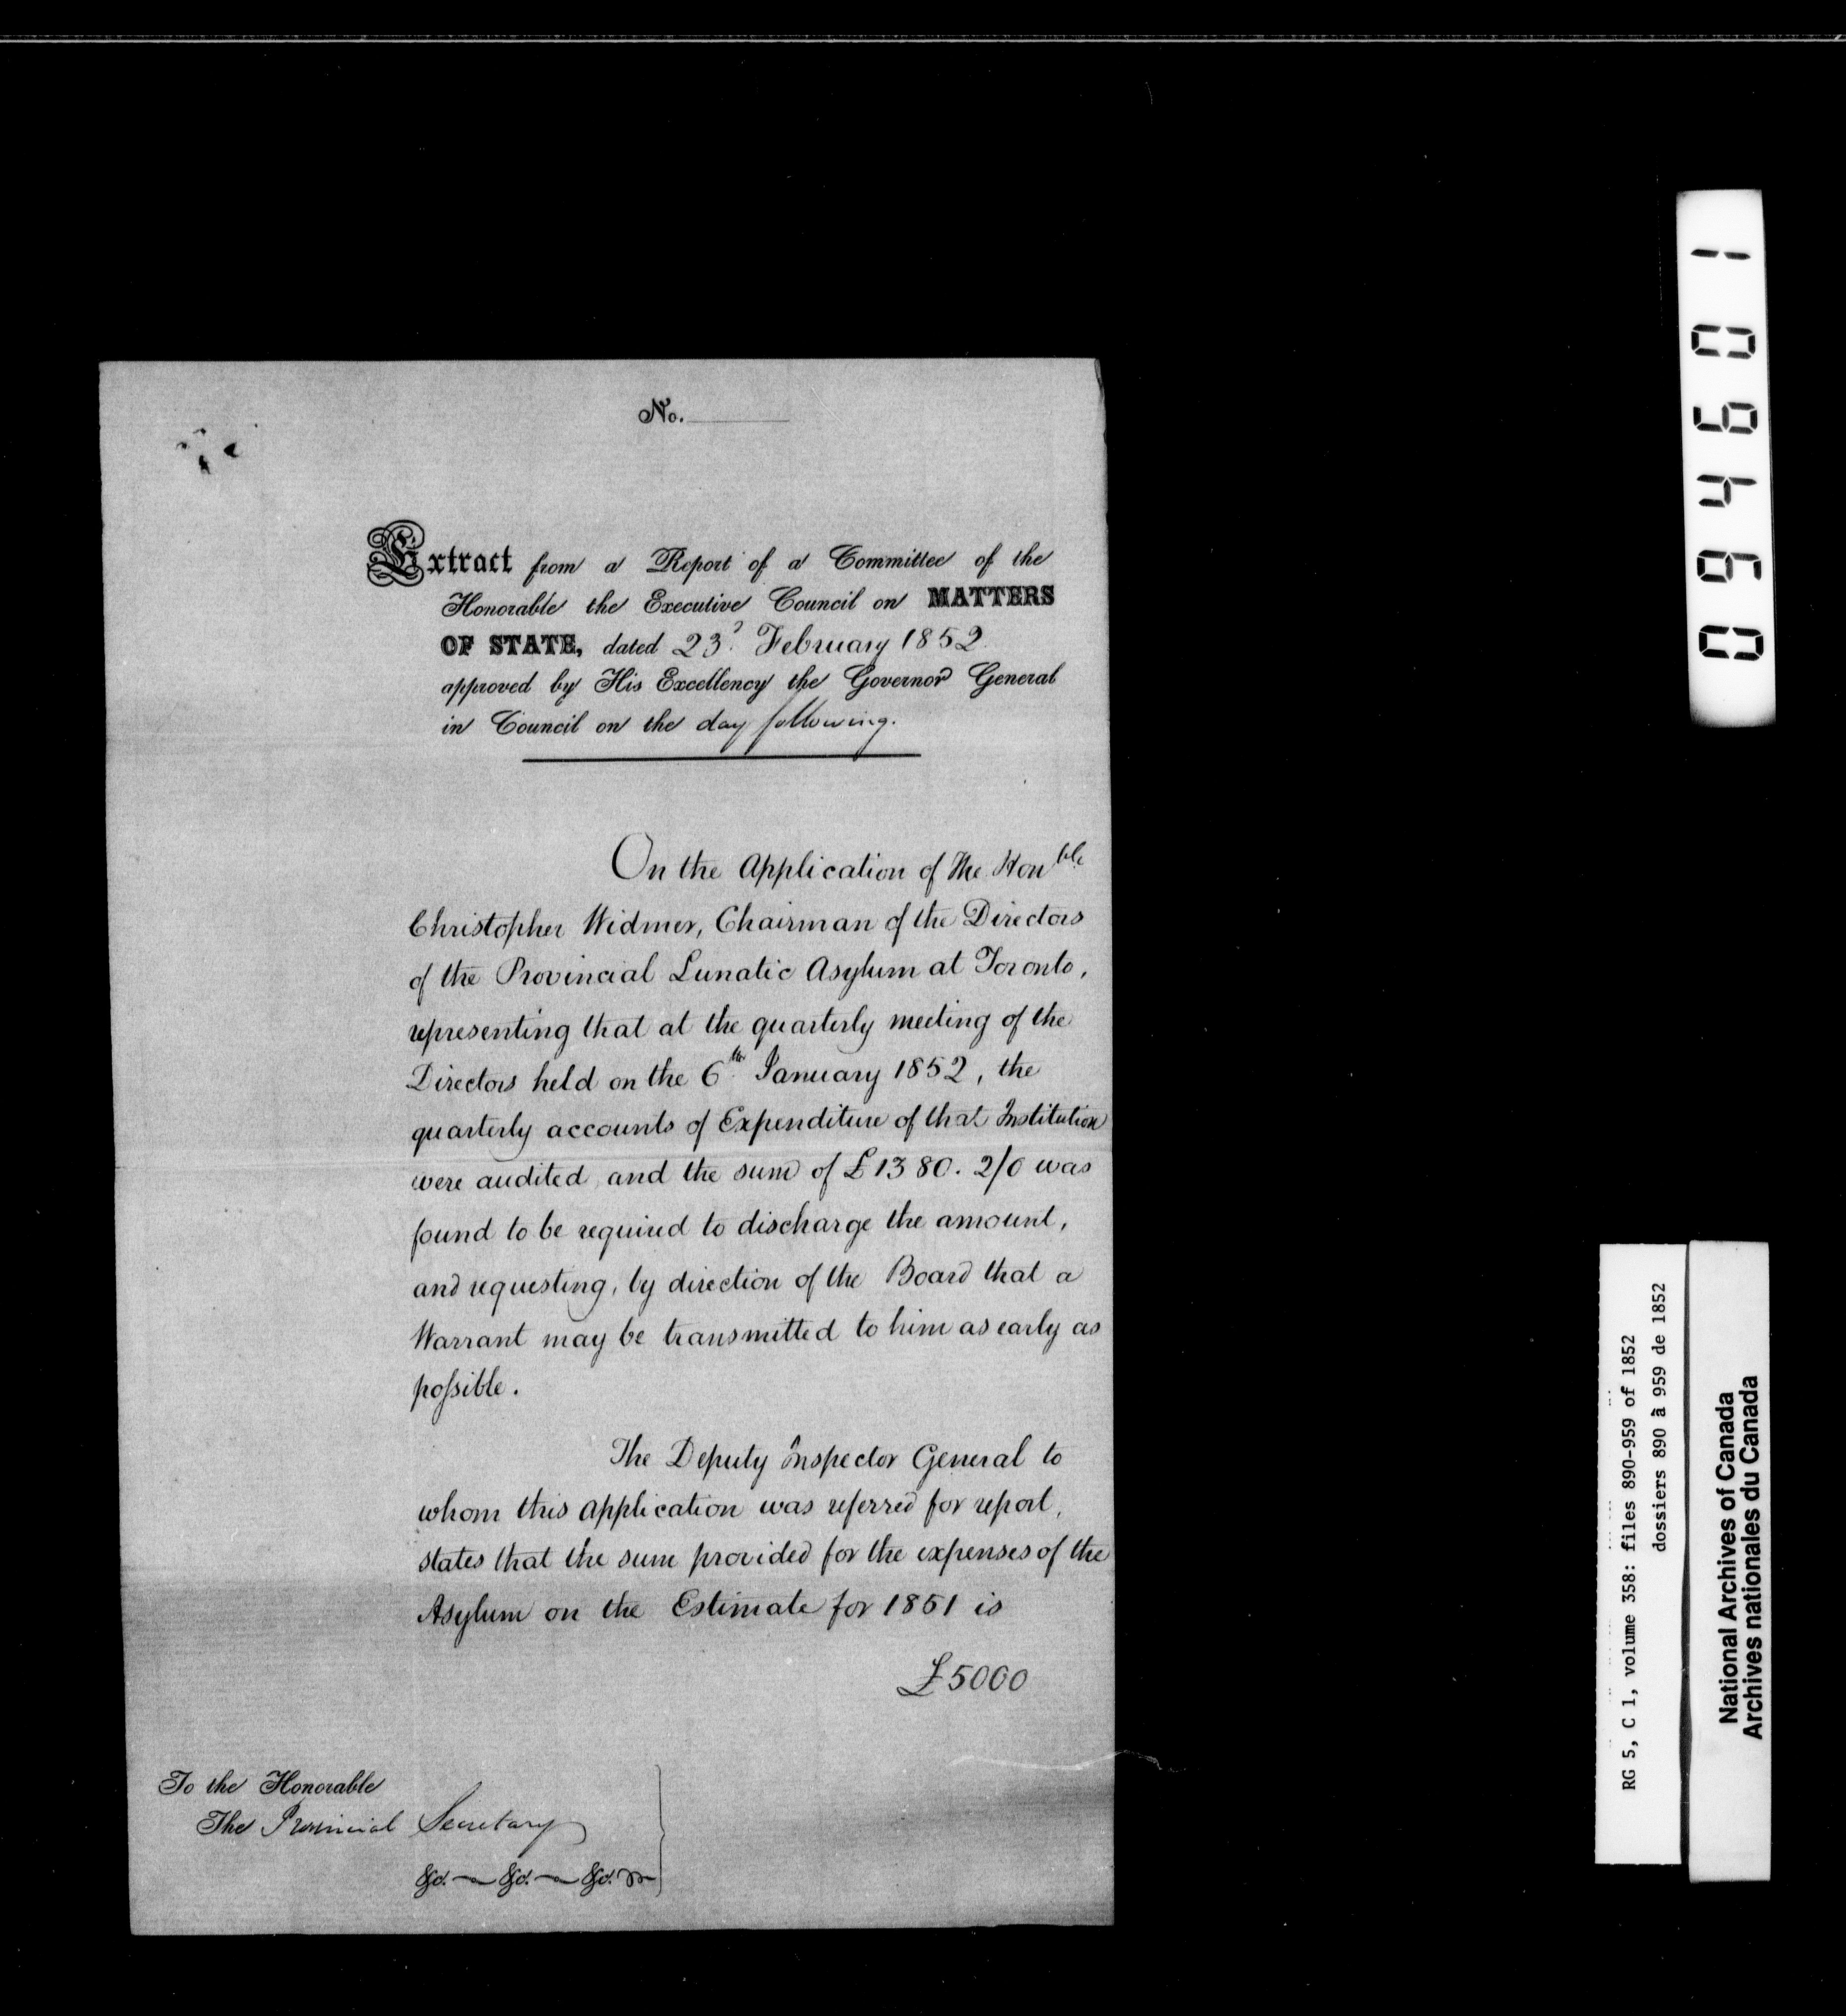 No.
Extract from a Report of a Committee of the
Honorable the Executive Council on MATTERS
OF STATE, dated 23d February 1852
approved by His Excellency the Governor General
in Council on the day following.
On the Application of The Honble
Christopher Widmer, Chairman of the Directors
of the Provincial Lunatic Asylum at Toronto,
representing that at the quarterly meeting of the
Directors held on the 6th January 1852, the
quarterly accounts of Expenditure of that Institution
were audited and the sum of £1380. 2/0 was
found to be required to discharge the amount,
and requesting, by direction of the Board that a
Warrant may be transmitted to him as early as
possible.
The Deputy Inspector General to
whom this application was referred for report,
states that the sum provided for the expenses of the
Asylum on the Estimate for 1851 is
£5000
To the Honorable
The Provincial Secretary
&c. &c. &c.
094601
RG 5, C 1, volume 358: files 890-959 of 1852
dossiers 890 à 959 de 1852
National Archives of Canada
Archives nationales du Canada